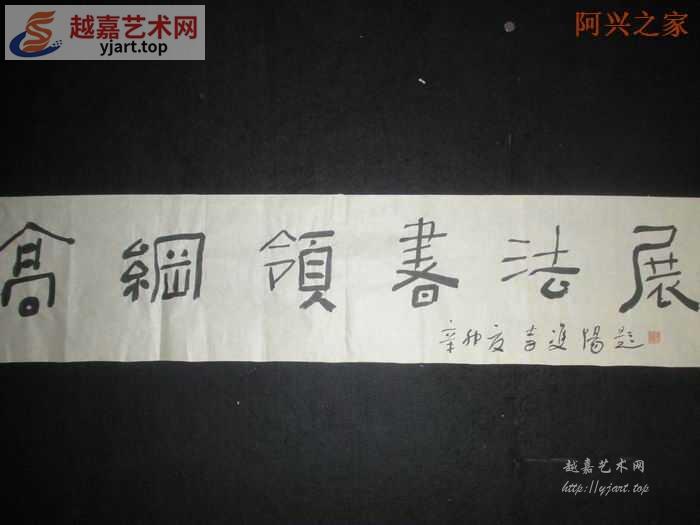 越嘉艺术网
yjart.top
阿兴之家
高綱領書法展
辛卯夏李進陽題
越嘉艺术网
http://yjart.top